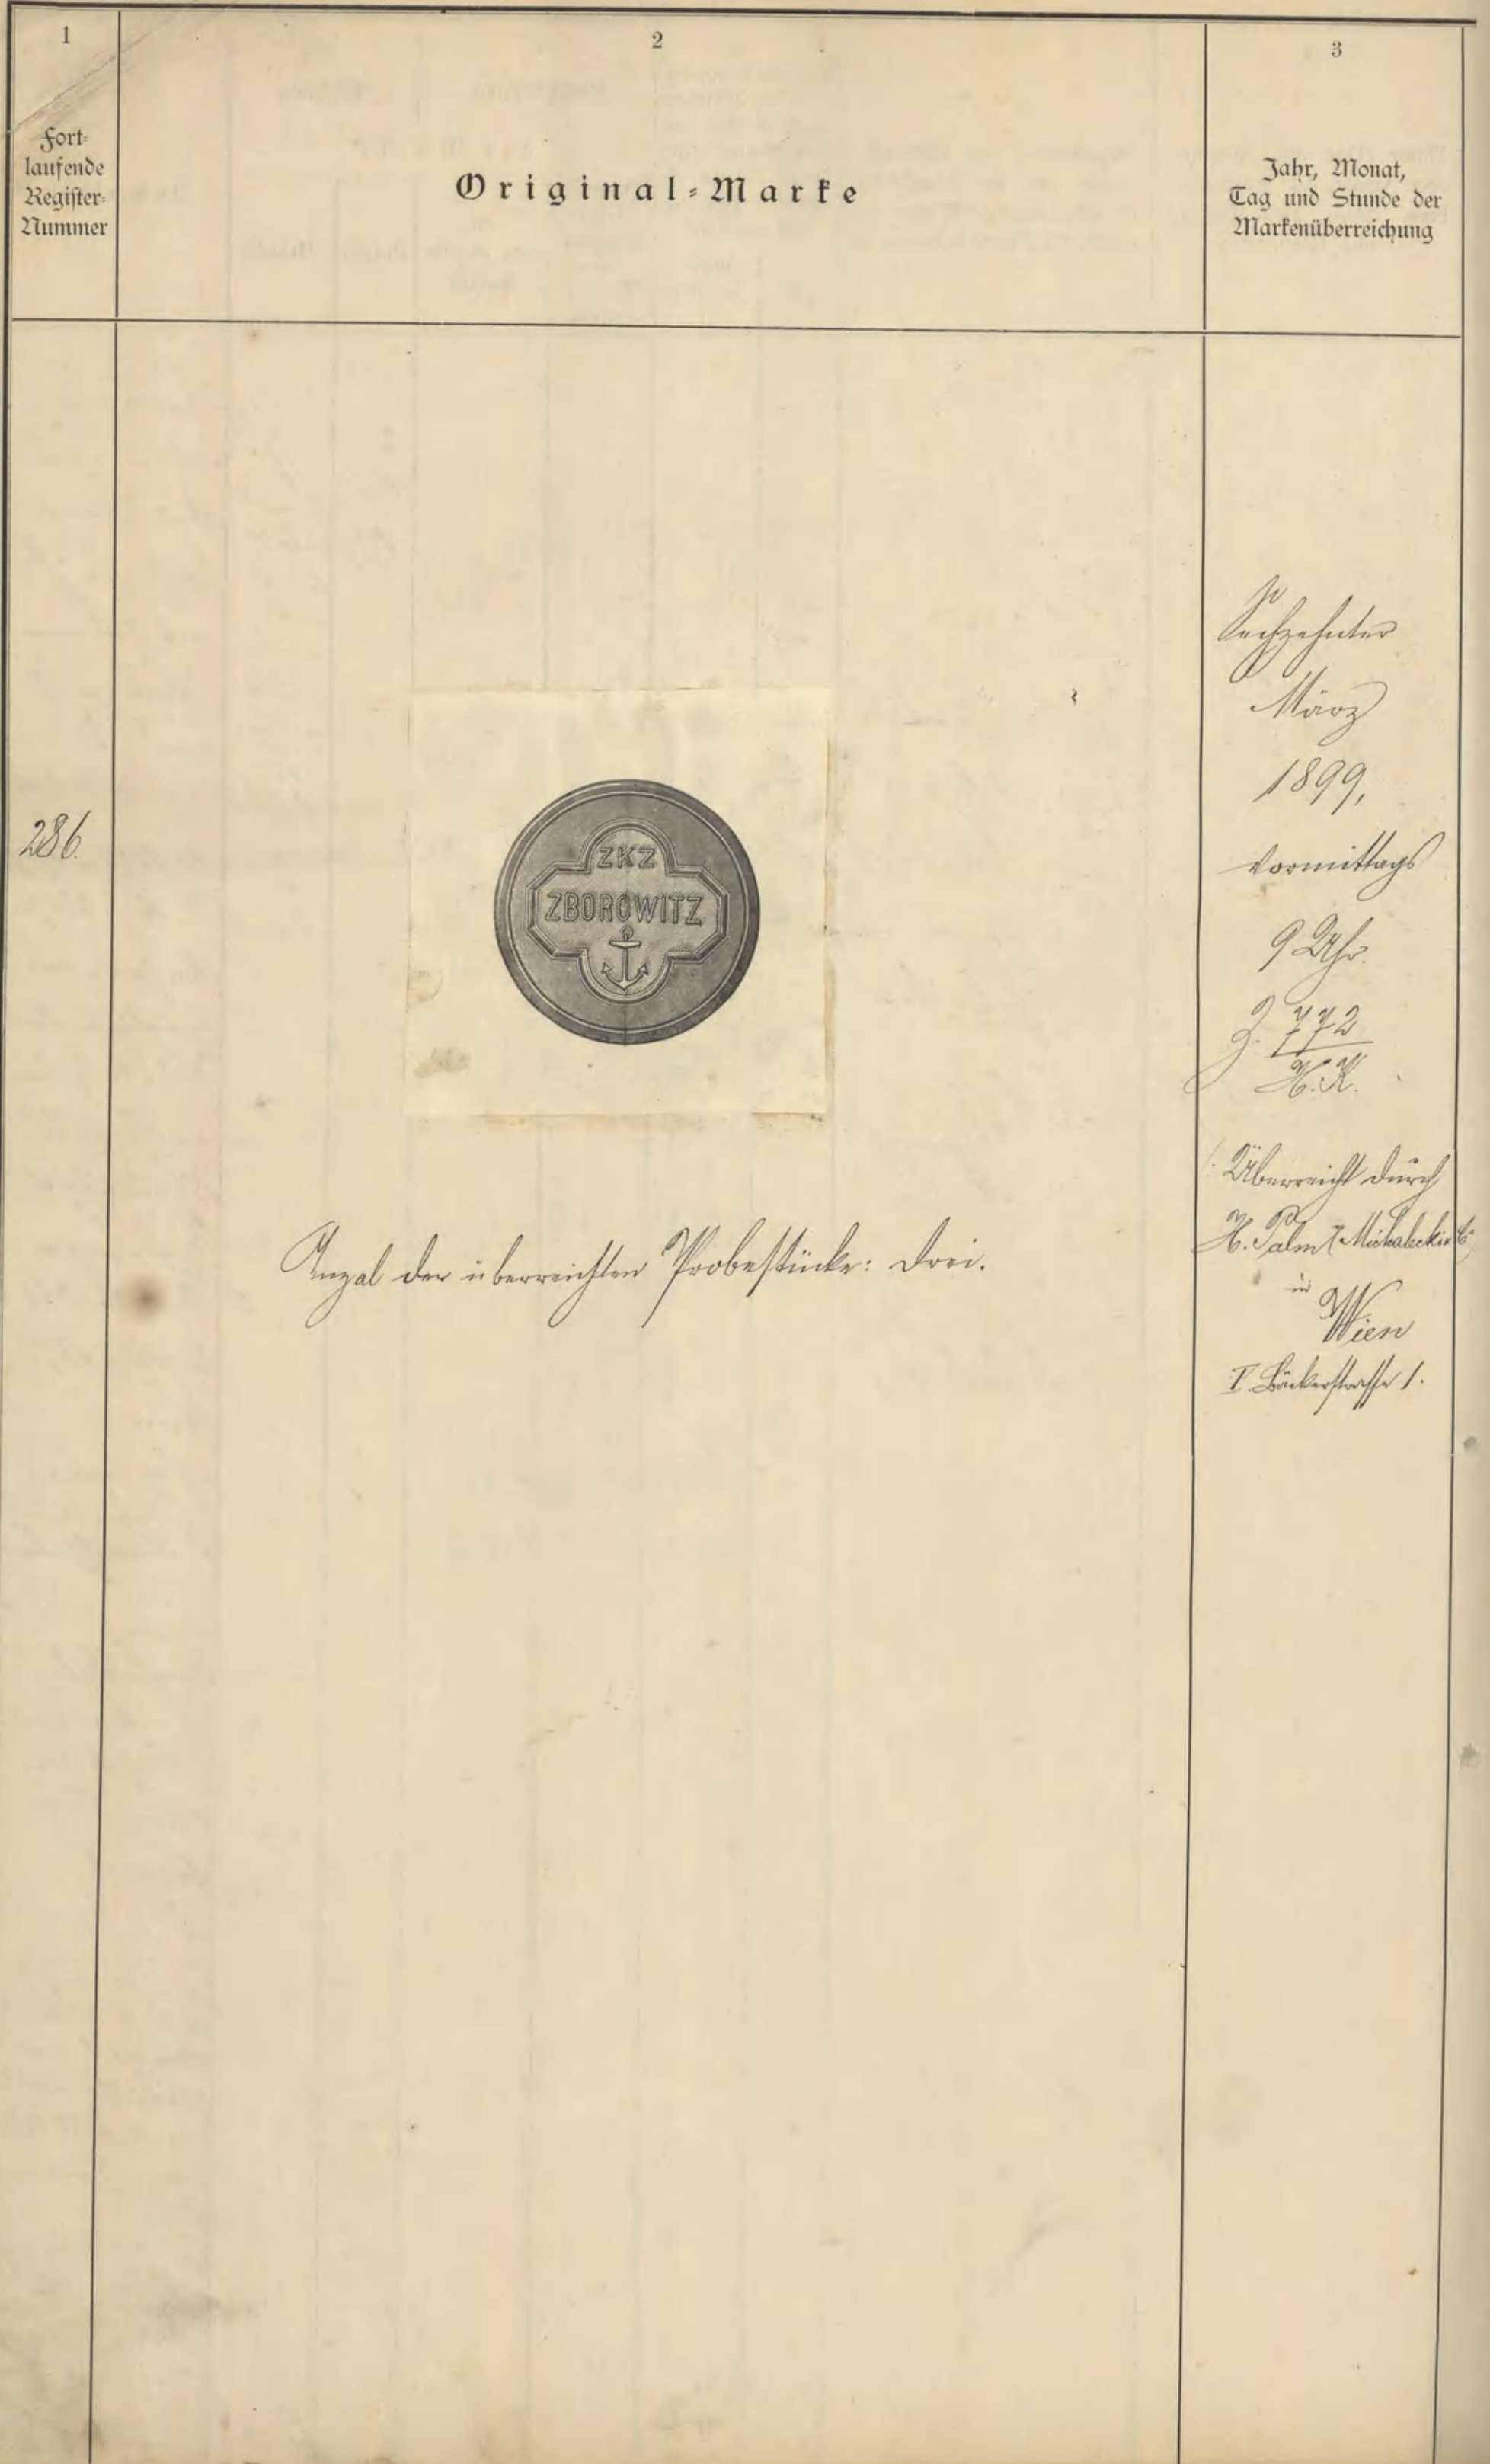 1
Fort-
laufende
Register-
Nummer
2
Original-Marke
3
Jahr, Monat,
Tag und Stunde der
Markenüberreichung
286.
ZKZ
ZBOROWITZ
Anzal der überreichten Probestücke: Drei.
Sechzehnter
März
1899,
Vormittags
9 Uhr.
Z. 772
H.K.
Überreicht durch
H. Palm
in
Wien
I. Bäckerstrasse 1.